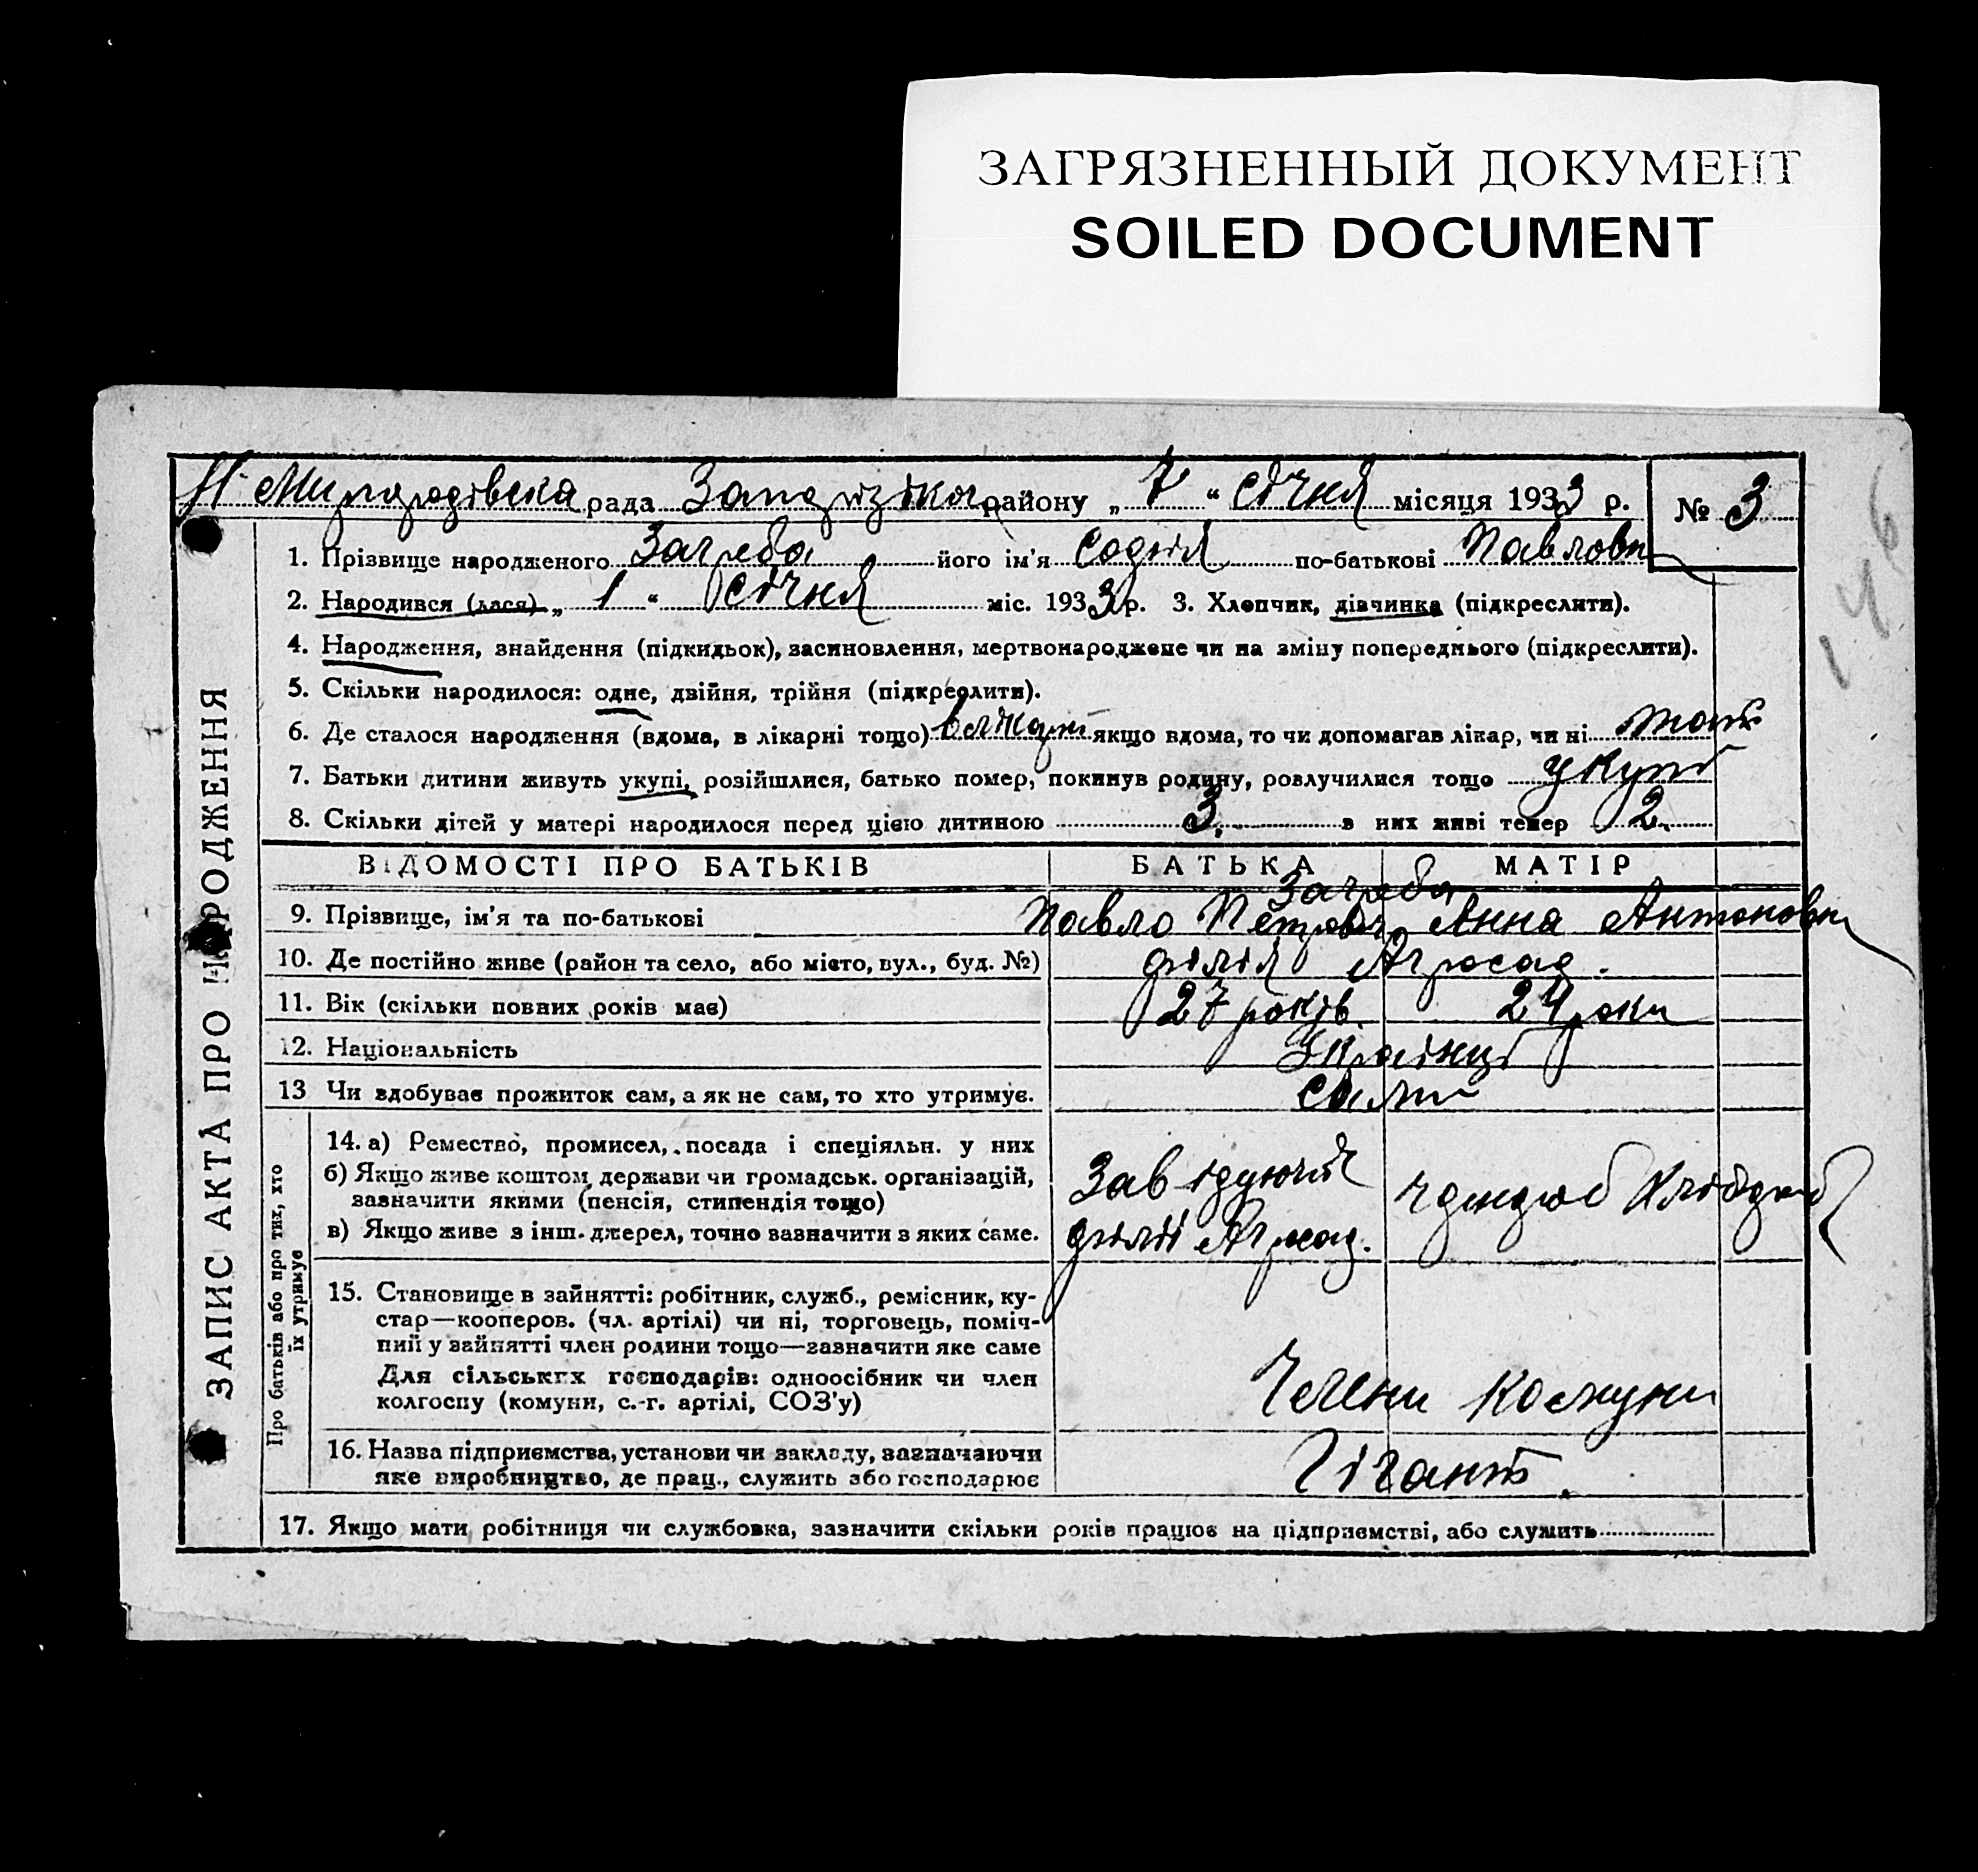 ЗАГРЯЗНЕННЫЙ ДОКУМЕНТ
SOILED DOCUMENT
рада району „ 7 “ Січня місяця 1933 р. № 3
146
ЗАПИС АКТА ПРО НАРОДЖЕННЯ
1. Прізвище народженого Загреба його ім'я Софія по-батькові Павловн
2. Народився (лася) „ 1 “ Січня міс. 1933 р. 3. Хлопчик, дівчинка (підкреслити).
4. Народження, знайдення (підкидьок), засиновлення, мертвонароджене чи на зміну попереднього (підкреслити).
5. Скільки народилося: одне, двійня, трійня (підкреслити).
6. Де сталося народження (вдома, в лікарні тощо) якщо вдома, то чи допомагав лікар, чи ні
7. Батьки дитини живуть укупі, розійшлися, батько помер, покинув родину, розлучилися тощо укупі
8. Скільки дітей у матері народилося перед цією дитиною 3. з них живі тепер 2.
ВІДОМОСТІ ПРО БАТЬКІВ БАТЬКА МАТІР
Загреба
9. Прізвище, ім'я та по-батькові Павло Петрович Анна Антоновн
10. Де постійно живе (район та село, або місто, вул., буд. №) філія Агросад.
11. Вік (скільки повних років має) 27 років 24 роки
12. Національність Українці
13 Чи здобуває прожиток сам, а як не сам, то хто утримує. Сами
Про батьків або про тих, хто
їх утримує
14. а) Ремество, промисел, посада і спеціяльн. у них
б) Якщо живе коштом держави чи громадськ. організацій,
зазначити якими (пенсія, стипендія тощо)
в) Якщо живе з інш. джерел, точно зазначити з яких саме.
Завідуючий
філії Агросад.
15. Становище в зайнятті: робітник, служб., ремісник, ку-
стар—кооперов. (чл. артілі) чи ні, торговець, поміч-
ний у зайнятті член родини тощо—зазначити яке саме
Для сільських господарів: одноосібник чи член
колгоспу (комуни, с.-г. артілі, СОЗ'у)
Члени комуни
16. Назва підприємства, установи чи закладу, зазначаючи
яке виробництво, де прац., служить або господарює
Гігант.
17. Якщо мати робітниця чи службовка, зазначити скільки років працює на підприємстві, або служить